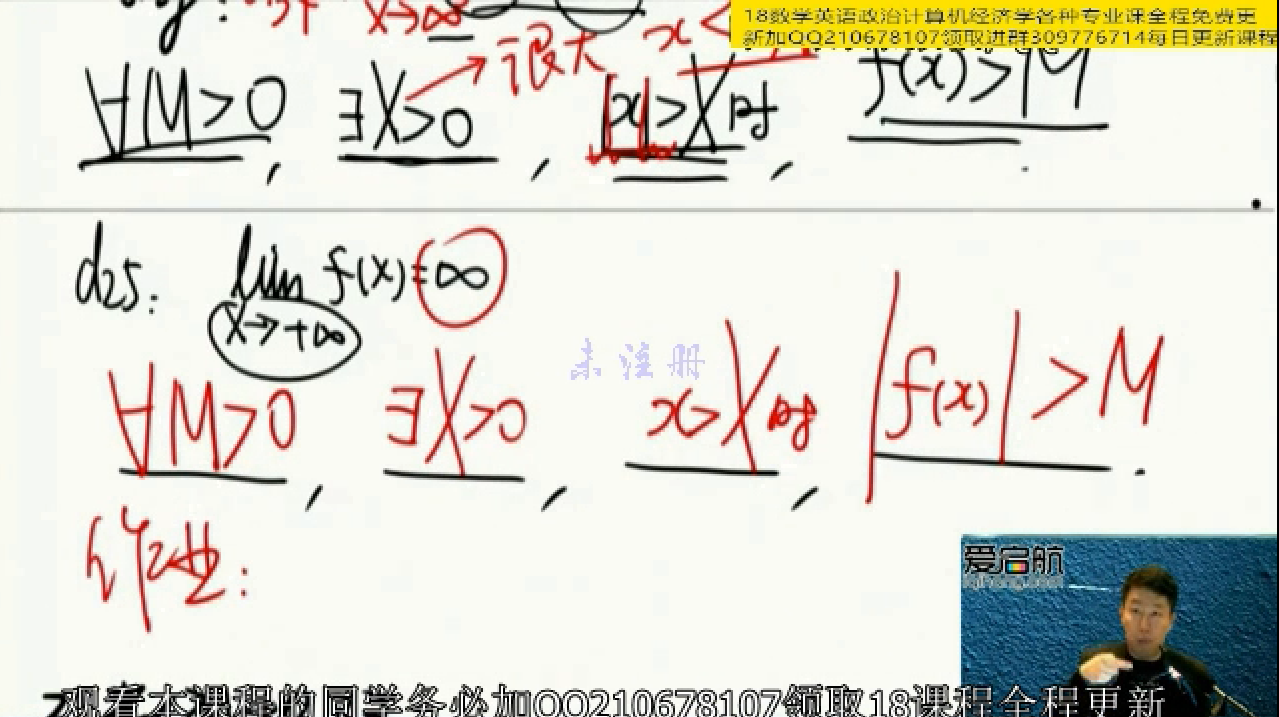 18数学英语政治计算机经济学各种专业课全程免费更
新加QQ210678107领取进群309776714每日更新课程
x→∞
x<
很大
∀M>0, ∃X>0, |x|>X时, f(x)>M.
d25: lim f(x)=∞
x→+∞
未注册
∀M>0, ∃X>0, x>X时, |f(x)|>M.
作业:
爱启航
iqihang.com
观看本课程的同学务必加QQ210678107领取18课程全程更新